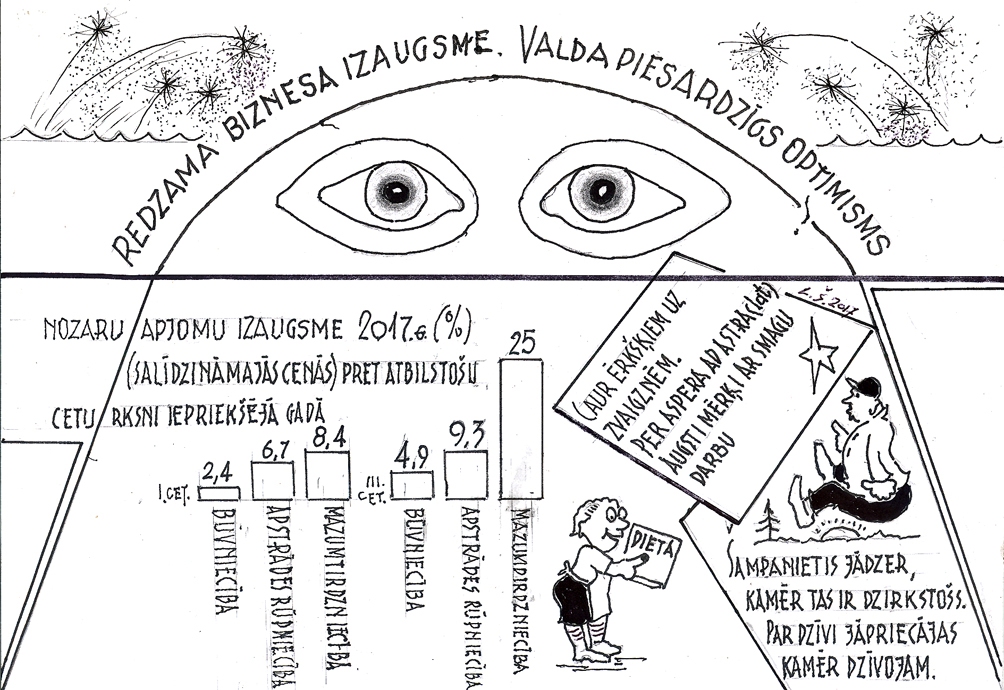 REDZAMA BIZNESA IZAUGSME. VALDA PIESARDZĪGS OPTIMISMS
NOZARU APJOMU IZAUGSME 2017.G. (%)
(SALĪDZINĀMAJĀS CENĀS) PRET ATBILSTOŠU
CETURKSNI IEPRIEKŠĒJĀ GADĀ
I. CET.
2,4
BŪVNIECĪBA
6,7
APSTRĀDES RŪPNIECĪBA
8,4
MAZUMTIRDZNIECĪBA
III. CET.
4,9
BŪVNIECĪBA
9,3
APSTRĀDES RŪPNIECĪBA
25
L.Š. 2017
CAUR ĒRKŠĶIEM UZ
ZVAIGZNĒM.
PER ASPERA AD ASTRA (lat)
AUGSTI MĒRĶI AR SMAGU
DARBU
DIETA
ŠAMPANIETIS JĀDZER,
KAMĒR TAS IR DZIRKSTOŠS.
PAR DZĪVI JĀPRIECĀJAS
KAMĒR DZĪVOJAM.